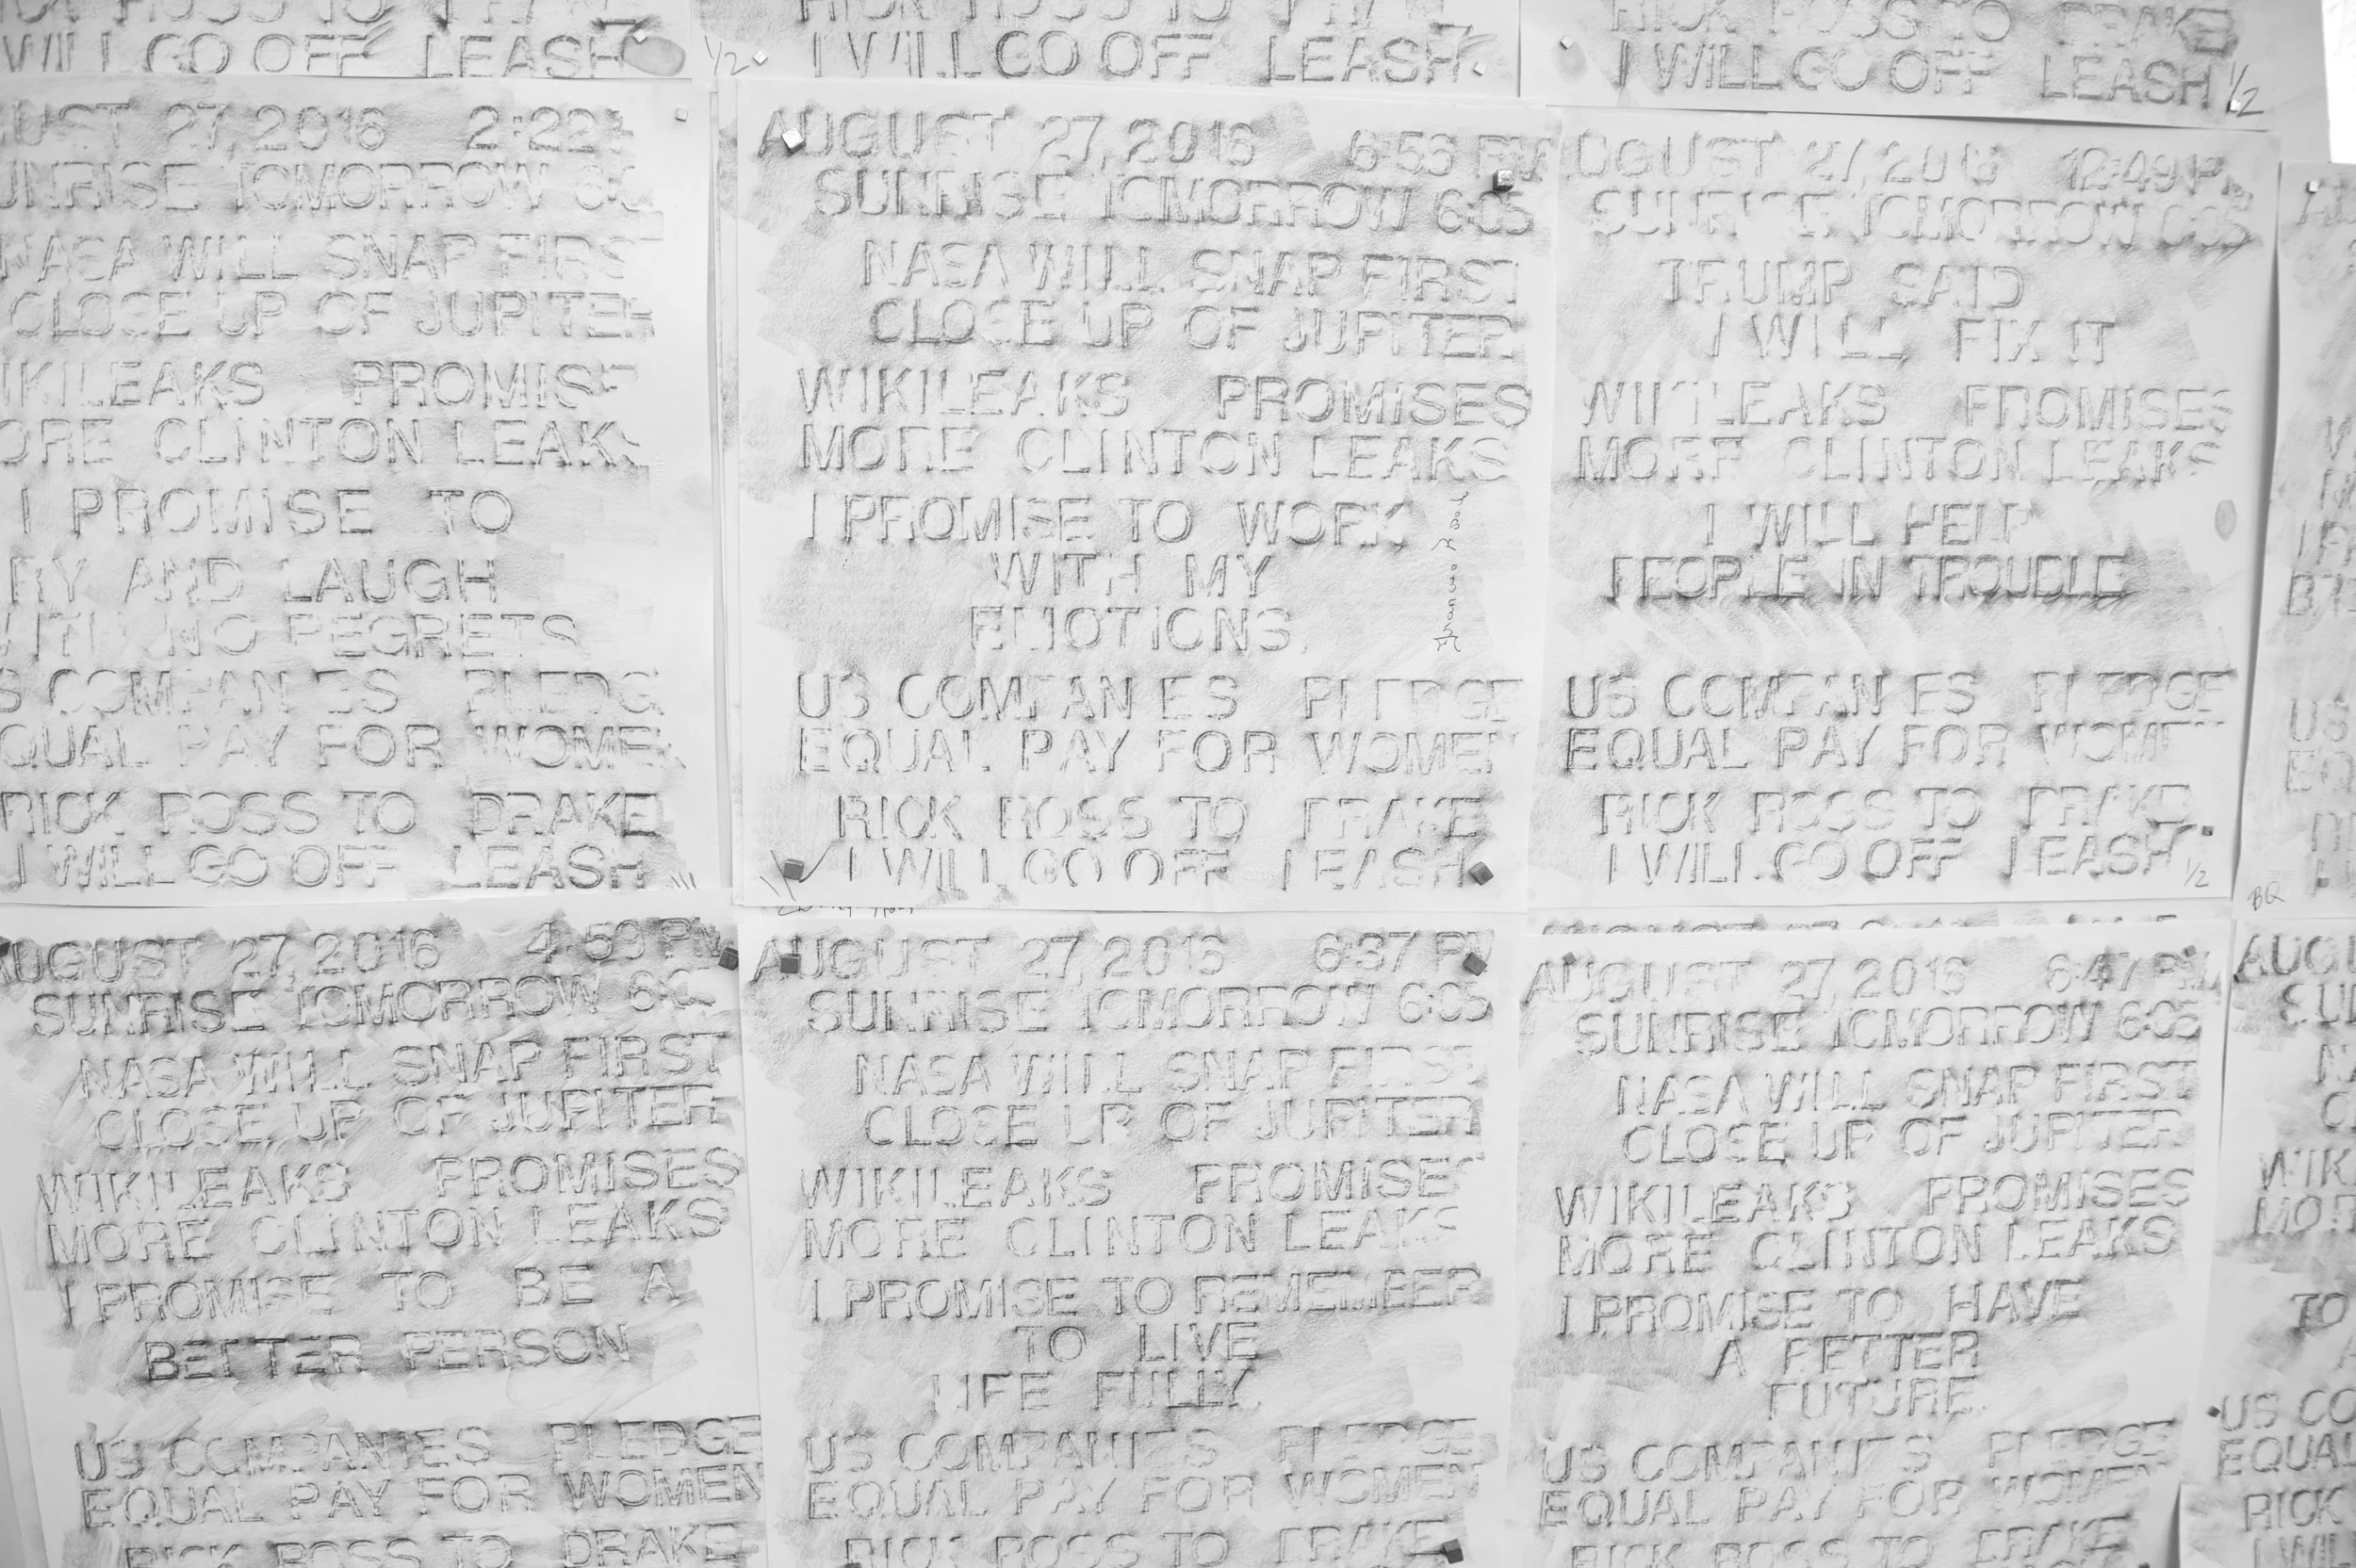 WILL GO OFF LEASH
1/2
I WILL GO OFF LEASH
RICK ROSS TO DRAKE
I WILL GO OFF LEASH
1/2
UST 27, 2016 2:22
UNRISE TOMORROW 6:0
NASA WILL SNAP FIRST
CLOSE UP OF JUPITER
IKILEAKS PROMISE
ORE CLINTON LEAKS
I PROMISE TO
RY AND LAUGH
WITH NO REGRETS
S COMPANIES PLEDG
QUAL PAY FOR WOMEN
RICK ROSS TO DRAKE
I WILL GO OFF LEASH
AUGUST 27, 2016 6:53 PM
SUNRISE TOMORROW 6:05
NASA WILL SNAP FIRST
CLOSE UP OF JUPITER
WIKILEAKS PROMISES
MORE CLINTON LEAKS
I PROMISE TO WORK
WITH MY
EMOTIONS.
US COMPANIES PLEDGE
EQUAL PAY FOR WOMEN
RICK ROSS TO DRAKE
I WILL GO OFF LEASH
UGUST 27, 2016 12:49 PM
SUNRISE TOMORROW 6:05
TRUMP SAID
I WILL FIX IT
WIKILEAKS PROMISES
MORE CLINTON LEAKS
I WILL HELP
PEOPLE IN TROUBLE
US COMPANIES PLEDGE
EQUAL PAY FOR WOMEN
RICK ROSS TO DRAKE
I WILL GO OFF LEASH
1/2
US
EQ
BQ
AUGUST 27, 2016 4:59 PM
SUNRISE TOMORROW 6:0
NASA WILL SNAP FIRST
CLOSE UP OF JUPITER
WIKILEAKS PROMISES
MORE CLINTON LEAKS
I PROMISE TO BE A
BETTER PERSON
US COMPANIES PLEDGE
EQUAL PAY FOR WOMEN
RICK ROSS TO DRAKE
AUGUST 27, 2016 6:37 PM
SUNRISE TOMORROW 6:05
NASA WILL SNAP FIRST
CLOSE UP OF JUPITER
WIKILEAKS PROMISES
MORE CLINTON LEAKS
I PROMISE TO REMEMBER
TO LIVE
LIFE FULLY.
US COMPANIES PLEDGE
EQUAL PAY FOR WOMEN
RICK ROSS TO DRAKE
AUGUST 27, 2016 6:47 PM
SUNRISE TOMORROW 6:05
NASA WILL SNAP FIRST
CLOSE UP OF JUPITER
WIKILEAKS PROMISES
MORE CLINTON LEAKS
I PROMISE TO HAVE
A BETTER
FUTURE.
US COMPANIES PLEDGE
EQUAL PAY FOR WOMEN
RICK ROSS TO DRAKE
AUGU
SUN
WIK
MOR
TO
US CO
EQUAL
RICK
I WIL